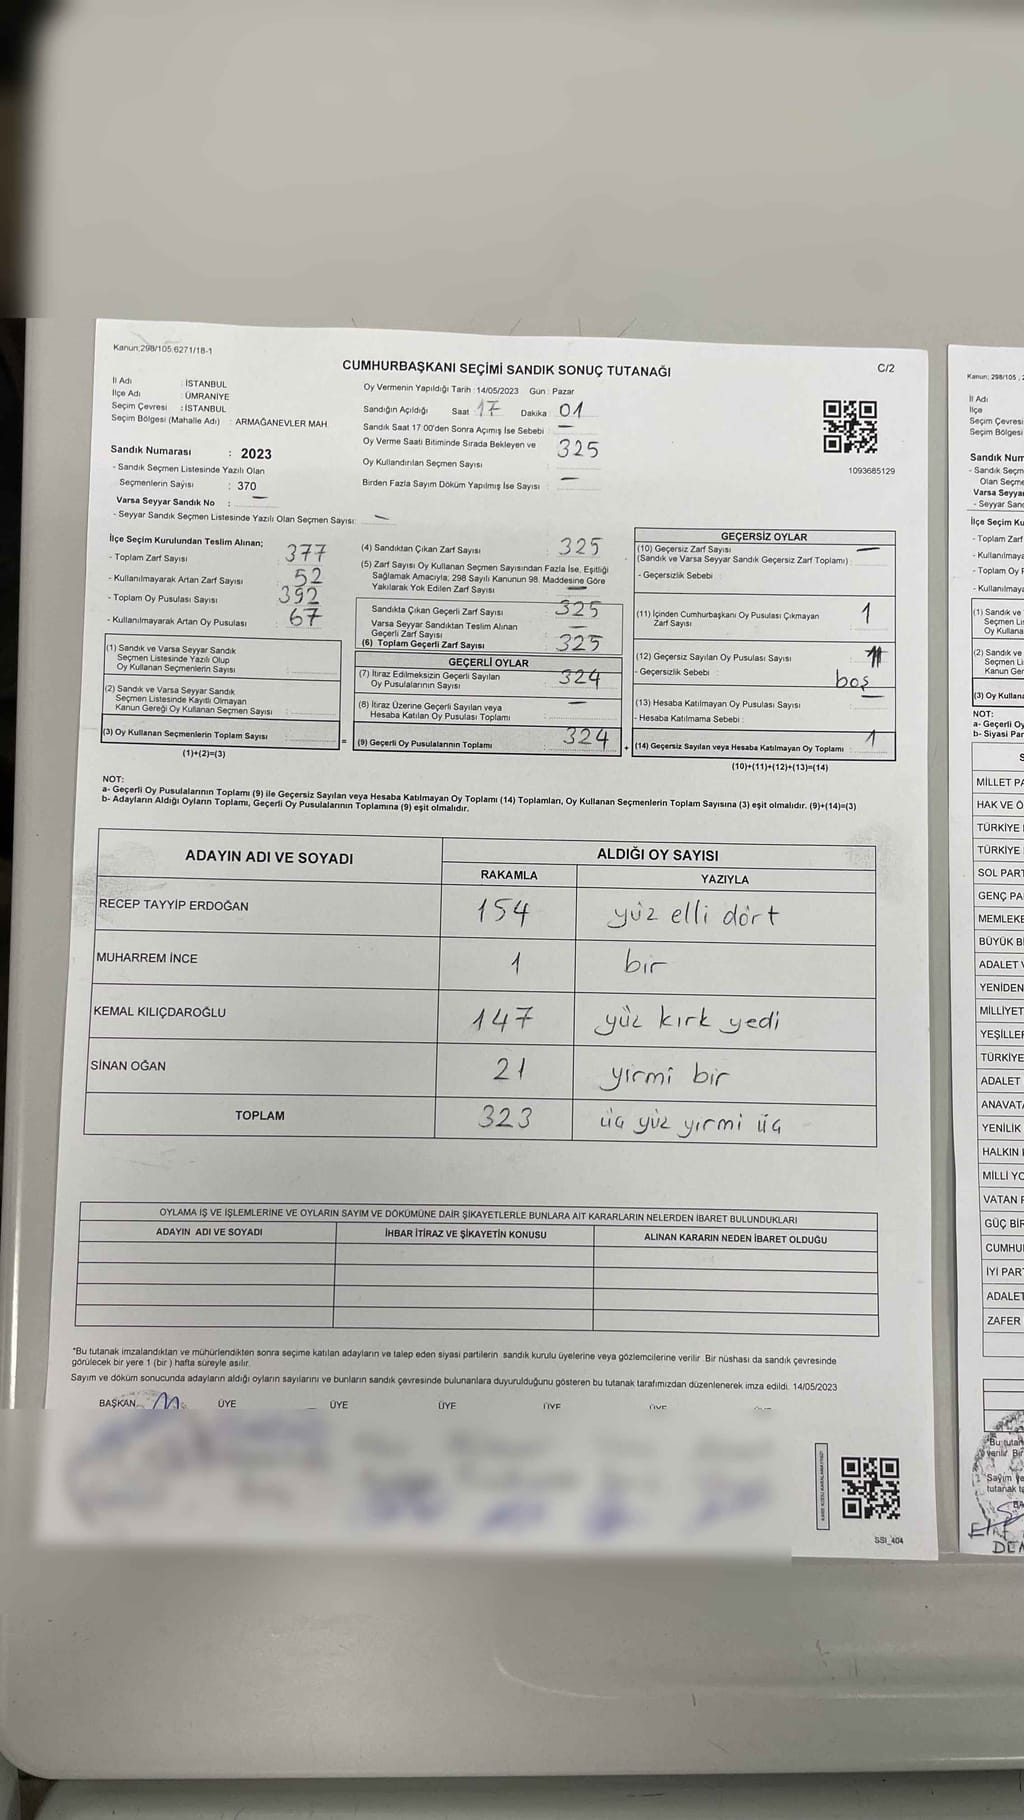 Kanun;298/105.6271/18-1
CUMHURBAŞKANI SEÇİMİ SANDIK SONUÇ TUTANAĞI
C/2
İl Adı : İSTANBUL
İlçe Adı : ÜMRANİYE
Seçim Çevresi : İSTANBUL
Seçim Bölgesi (Mahalle Adı) : ARMAĞANEVLER MAH
Sandık Numarası : 2023
- Sandık Seçmen Listesinde Yazılı Olan
Seçmenlerin Sayısı : 370
Varsa Seyyar Sandık No : —
- Seyyar Sandık Seçmen Listesinde Yazılı Olan Seçmen Sayısı: —
Oy Vermenin Yapıldığı Tarih : 14/05/2023 Gün : Pazar
Sandığın Açıldığı Saat 17 Dakika 01
Sandık Saat 17:00'den Sonra Açımış İse Sebebi : —
Oy Verme Saati Bitiminde Sırada Bekleyen ve
Oy Kullandırılan Seçmen Sayısı 325
Birden Fazla Sayım Döküm Yapılmış İse Sayısı : —
1093685129
İlçe Seçim Kurulundan Teslim Alınan;
- Toplam Zarf Sayısı : 377
- Kullanılmayarak Artan Zarf Sayısı : 52
- Toplam Oy Pusulası Sayısı : 392
- Kullanılmayarak Artan Oy Pusulası : 67
(1) Sandık ve Varsa Seyyar Sandık
Seçmen Listesinde Yazılı Olup
Oy Kullanan Seçmenlerin Sayısı :
(2) Sandık ve Varsa Seyyar Sandık
Seçmen Listesinde Kayıtlı Olmayan
Kanun Gereği Oy Kullanan Seçmen Sayısı :
(3) Oy Kullanan Seçmenlerin Toplam Sayısı :
=
(1)+(2)=(3)
(4) Sandıktan Çıkan Zarf Sayısı : 325
(5) Zarf Sayısı Oy Kullanan Seçmen Sayısından Fazla İse, Eşitliği
Sağlamak Amacıyla; 298 Sayılı Kanunun 98. Maddesine Göre
Yakılarak Yok Edilen Zarf Sayısı : —
Sandıkta Çıkan Geçerli Zarf Sayısı : 325
Varsa Seyyar Sandıktan Teslim Alınan
Geçerli Zarf Sayısı : —
(6) Toplam Geçerli Zarf Sayısı : 325
GEÇERLİ OYLAR
(7) İtiraz Edilmeksizin Geçerli Sayılan
Oy Pusulalarının Sayısı : 324
(8) İtiraz Üzerine Geçerli Sayılan veya
Hesaba Katılan Oy Pusulası Toplamı : —
(9) Geçerli Oy Pusulalarının Toplamı : 324
+
GEÇERSİZ OYLAR
(10) Geçersiz Zarf Sayısı —
(Sandık ve Varsa Seyyar Sandık Geçersiz Zarf Toplamı) :
- Geçersizlik Sebebi :
(11) İçinden Cumhurbaşkanı Oy Pusulası Çıkmayan 1
Zarf Sayısı
(12) Geçersiz Sayılan Oy Pusulası Sayısı :
- Geçersizlik Sebebi : boş
(13) Hesaba Katılmayan Oy Pusulası Sayısı : —
- Hesaba Katılmama Sebebi :
(14) Geçersiz Sayılan veya Hesaba Katılmayan Oy Toplamı : 1
(10)+(11)+(12)+(13)=(14)
NOT:
a- Geçerli Oy Pusulalarının Toplamı (9) ile Geçersiz Sayılan veya Hesaba Katılmayan Oy Toplamı (14) Toplamları, Oy Kullanan Seçmenlerin Toplam Sayısına (3) eşit olmalıdır. (9)+(14)=(3)
b- Adayların Aldığı Oyların Toplamı, Geçerli Oy Pusulalarının Toplamına (9) eşit olmalıdır.
ADAYIN ADI VE SOYADI
ALDIĞI OY SAYISI
RAKAMLA YAZIYLA
RECEP TAYYİP ERDOĞAN 154 yüz elli dört
MUHARREM İNCE 1 bir
KEMAL KILIÇDAROĞLU 147 yüz kırk yedi
SİNAN OĞAN 21 yirmi bir
TOPLAM 323 üç yüz yirmi üç
OYLAMA İŞ VE İŞLEMLERİNE VE OYLARIN SAYIM VE DÖKÜMÜNE DAİR ŞİKAYETLERLE BUNLARA AİT KARARLARIN NELERDEN İBARET BULUNDUKLARI
ADAYIN ADI VE SOYADI İHBAR İTİRAZ VE ŞİKAYETİN KONUSU ALINAN KARARIN NEDEN İBARET OLDUĞU
*Bu tutanak imzalandıktan ve mühürlendikten sonra seçime katılan adayların ve talep eden siyasi partilerin sandık kurulu üyelerine veya gözlemcilerine verilir. Bir nüshası da sandık çevresinde
görülecek bir yere 1 (bir) hafta süreyle asılır.
Sayım ve döküm sonucunda adayların aldığı oyların sayılarını ve bunların sandık çevresinde bulunanlara duyurulduğunu gösteren bu tutanak tarafımızdan düzenlenerek imza edildi. 14/05/2023
BAŞKAN ÜYE ÜYE ÜYE ÜYE ÜYE
SSI_404
Kanun; 298/105
İl Adı
İlçe
Seçim Çevresi
Seçim Bölgesi
Sandık Num
- Sandık Seçm
Olan Seçme
Varsa Seyya
- Seyyar San
İlçe Seçim Ku
- Toplam Zarf
- Kullanılmaya
- Toplam Oy P
- Kullanılmaya
(1) Sandık ve
Seçmen Lis
Oy Kullana
(2) Sandık ve
Seçmen Li
Kanun Ger
(3) Oy Kullana
NOT:
a- Geçerli Oy
b- Siyasi Par
MİLLET PA
HAK VE Ö
TÜRKİYE
TÜRKİYE
SOL PART
GENÇ PA
MEMLEKE
BÜYÜK Bİ
ADALET V
YENİDEN
MİLLİYET
YEŞİLLER
TÜRKİYE
ADALET
ANAVATA
YENİLİK
HALKIN
MİLLİ YO
VATAN P
GÜÇ BİR
CUMHU
İYİ PART
ADALET
ZAFER
*Bu tutan
verilir. Bir
Sayım ve
tutanak ta